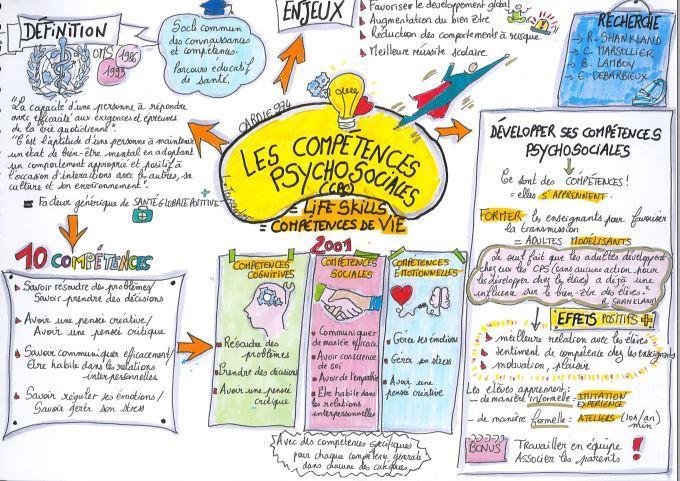 DÉFINITION
OMS 1986
1993
"La capacité d'une personne à répondre
avec efficacité aux exigences et épreuves
de la vie quotidienne".
"C'est l'aptitude d'une personne à maintenir
un état de bien-être mental en adaptant
un comportement approprié et positif à
l'occasion d'interactions avec les autres, sa
culture et son environnement".
= Facteur générique de SANTÉ GLOBALE POSITIVE
Socle commun
des connaissances
et compétences.
Parcours éducatif
de santé.
ENJEUX
Favoriser le développement global
Augmentation du bien être
Réduction des comportements à risque
Meilleure réussite scolaire
RECHERCHE
→ R. SHANKLAND
→ C. MARSOLLIER
→ B. LAMBOY
→ E. DEBARBIEUX
CARDIE 974
LES COMPÉTENCES
PSYCHO-SOCIALES
(CPS)
= LIFE SKILLS
= COMPÉTENCES DE VIE
10 COMPÉTENCES
Savoir résoudre des problèmes/
Savoir prendre des décisions
Avoir une pensée créative/
Avoir une pensée critique
Savoir communiquer efficacement/
Etre habile dans les relations
interpersonnelles
Savoir réguler ses émotions/
Savoir gérer son stress
2001
COMPÉTENCES
COGNITIVES
Résoudre des
problèmes
Prendre des décisions
Avoir une pensée
critique
COMPÉTENCES
SOCIALES
Communiquer
de manière efficace
Avoir conscience
de soi
Avoir de l'empathie
Etre habile dans
les relations
interpersonnelles
COMPÉTENCES
ÉMOTIONNELLES
Gérer ses émotions
Gérer son stress
Avoir une
pensée créative
Avec des compétences spécifiques
pour chaque compétence générale
dans chacune des catégories
DÉVELOPPER SES COMPÉTENCES
PSYCHOSOCIALES
Ce sont des COMPÉTENCES!
= elles S'APPRENNENT.
FORMER les enseignants pour favoriser
la transmission
= ADULTES MODÉLISANTS
"Le seul fait que les adultes développent
chez eux les CPS (sans aucune action pour
les développer chez les élèves) a déjà une
influence sur le bien-être des élèves."
R. SHANKLAND
EFFETS POSITIFS +
meilleure relation avec les élèves
sentiment de compétence chez les enseignants
motivation, plaisir
Les élèves apprennent:
- de manière informelle = IMITATION
EXPÉRIENCE
- de manière formelle = ATELIERS (10h/an)
min
BONUS
Travailler en équipe
Associer les parents !